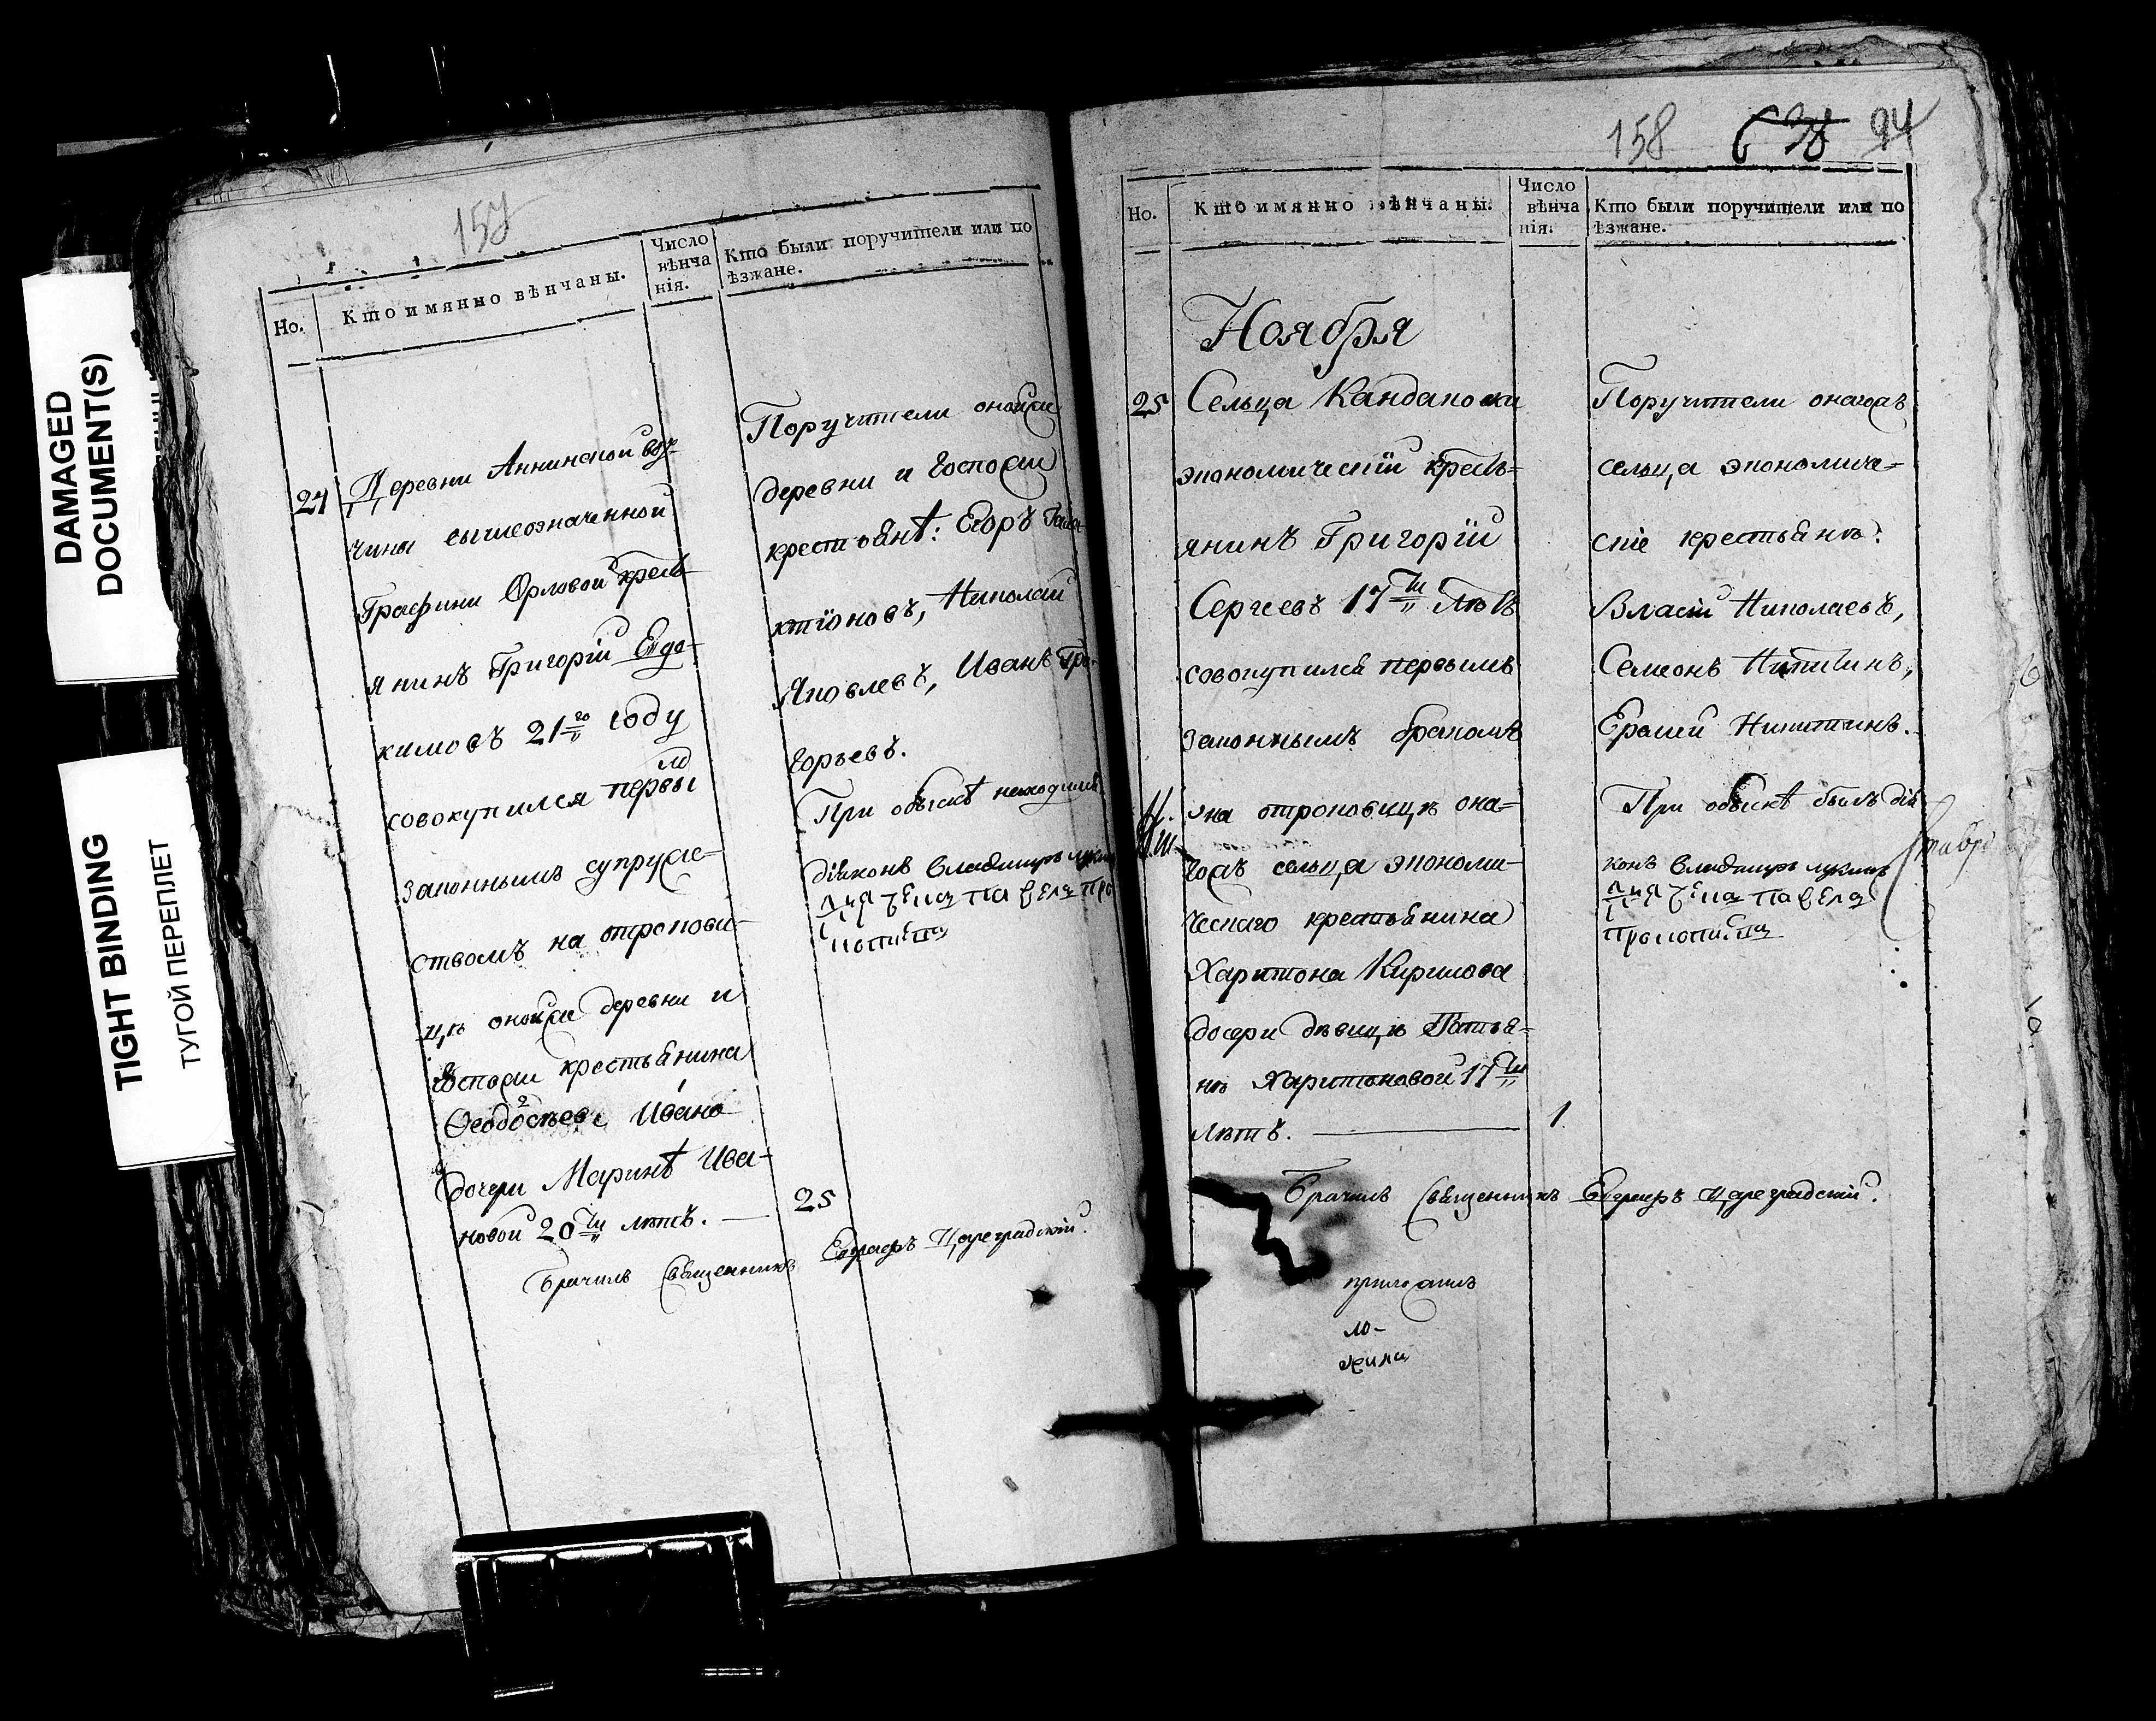 DAMAGED
DOCUMENT(S)
TIGHT BINDING
ТУГОЙ ПЕРЕПЛЕТ
157
Но.
Кто имянно вѣнчаны.
Число
вѣнча
нія.
Кто были поручители или по
ѣзжане.
24
Деревни Аннинской вот-
чины вышеозначенной
Графини Орловой кресть-
янинъ Григорій Евдо-
кимовъ 21го году
совокупился первы
мъ
законнымъ супруже-
ствомъ на отрокови-
цѣ онойже деревни и
Госпожи крестьянина
дочери Маринѣ Ива-
новой 20ти лѣтъ.
25
Поручители онойже
деревни и Госпожи
крестьянѣ: Егоръ
ктіоновъ, Николай
Яковлевъ, Иванъ Гри-
горьевъ.
При обыскѣ находился
діяконъ Владимиръ
Брачилъ Священникъ Евграфъ Цареградскій.
158 94
Но.
Кто имянно вѣнчаны.
Число
вѣнча
нія.
Кто были поручители или по
ѣзжане.
Ноября
25
Сельца Кандаковки
экономическій кресть-
янинъ Григорій
Сергеевъ 17ти лѣтъ
совокупился первымъ
законнымъ бракомъ
на отроковицѣ она-
гожъ сельца экономи-
ческаго крестьянина
Харитона Кирилова
дочери дѣвицѣ Татья-
нѣ Харитоновой 17ти
лѣтъ.
1
Поручители онагожъ
сельца экономиче-
скіе крестьянѣ:
Власій Николаевъ,
Семіонъ Никитинъ,
Еремѣй Никитинъ.
При обыскѣ былъ дія
конъ Владимиръ
Брачилъ Священникъ Евграфъ Цареградскій.